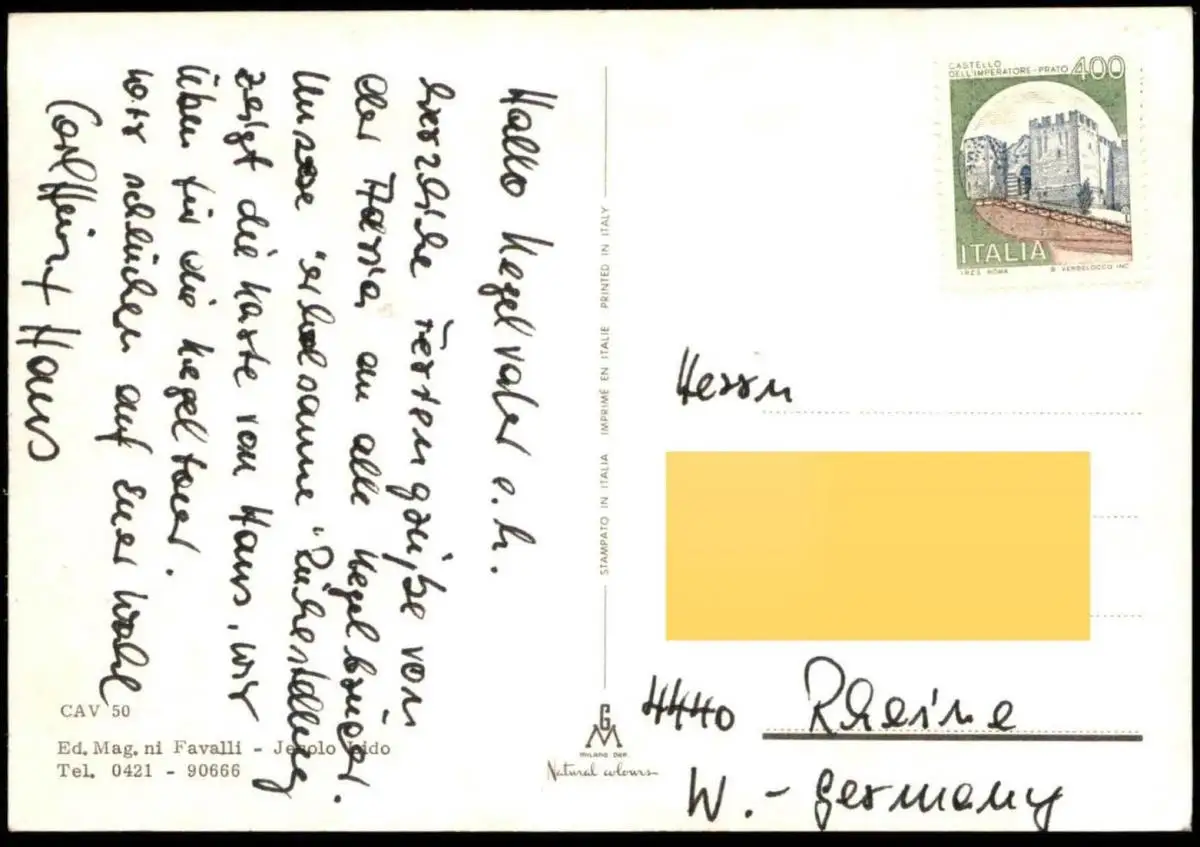 Hallo Kegelvater e.h.
herzliche Feriengrüße von
der Adria, an alle Kegelbrüder.
Unsere "erholsame" Ruhestellung
zeigt die Karte von Haus, wir
üben für die Kegeltour.
wir schlucken auf Euer Wohl
Carl Heinz + Haus
CAV 50
Ed. Mag. ni Favalli - Jesolo Lido
Tel. 0421 - 90666
STAMPATO IN ITALIA IMPRIMÉ EN ITALIE PRINTED IN ITALY
GM
MILANO DEP.
Natural colours
CASTELLO
DELL'IMPERATORE-PRATO 400
ITALIA
I.P.Z.S. ROMA B. VERDELOCCO INC.
Herrn
4440 Rheine
W.-Germany